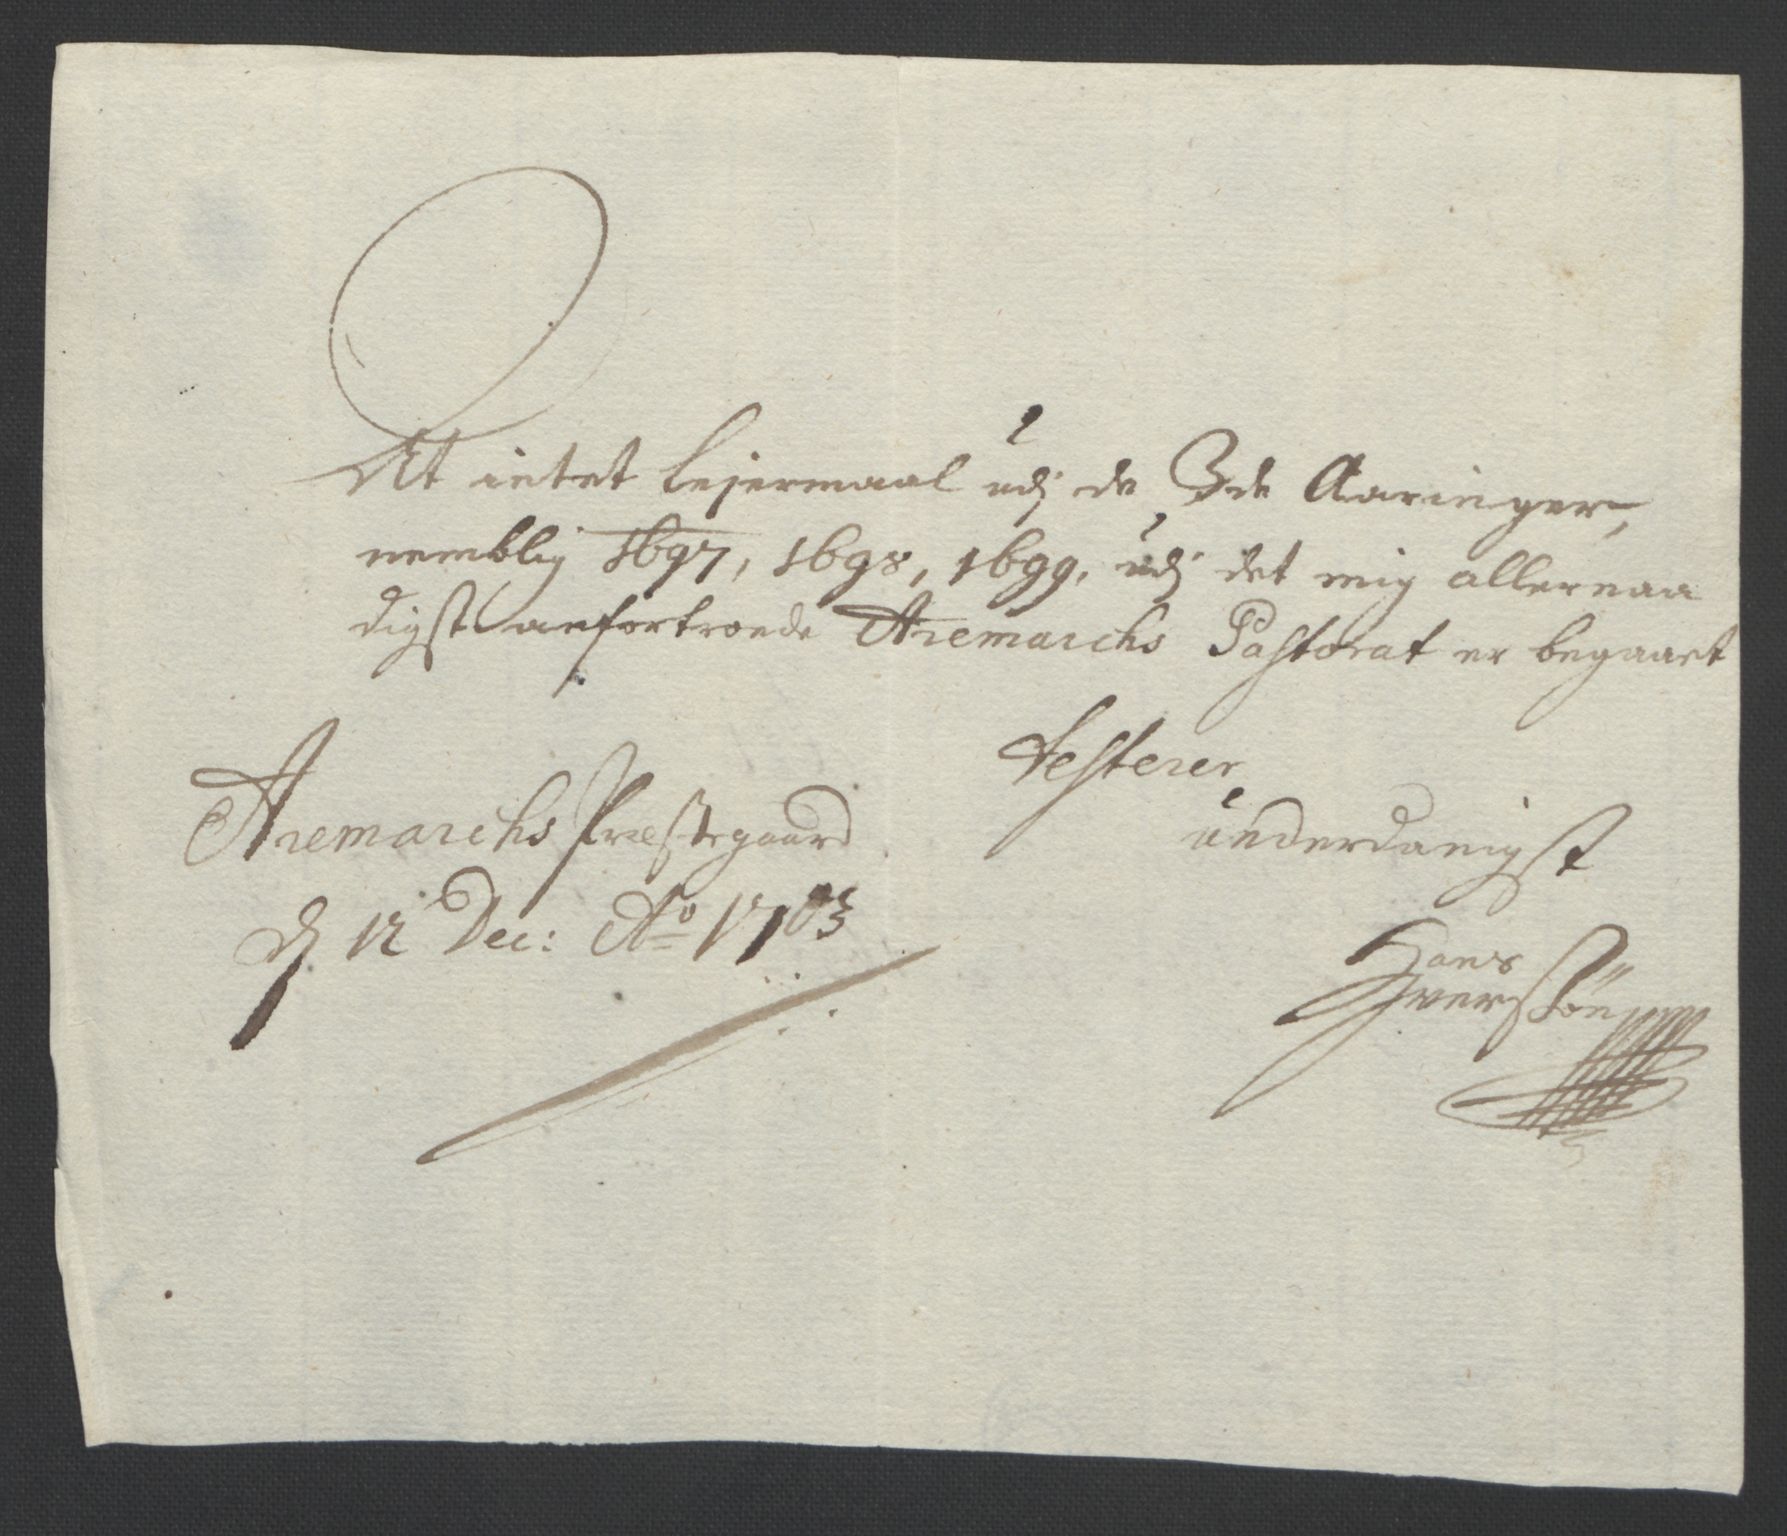 At intet lejermaal udj de 3de Aaringer,
nemblig 1697, 1698, 1699, udj det mig allernaa
digst anfortroede Aremarchs Pastorat er begaaet
testerer
underdanigst
Aremarchs Præstegaard
dj 12 Dec: Ao 1703
Hans
Iverssøn